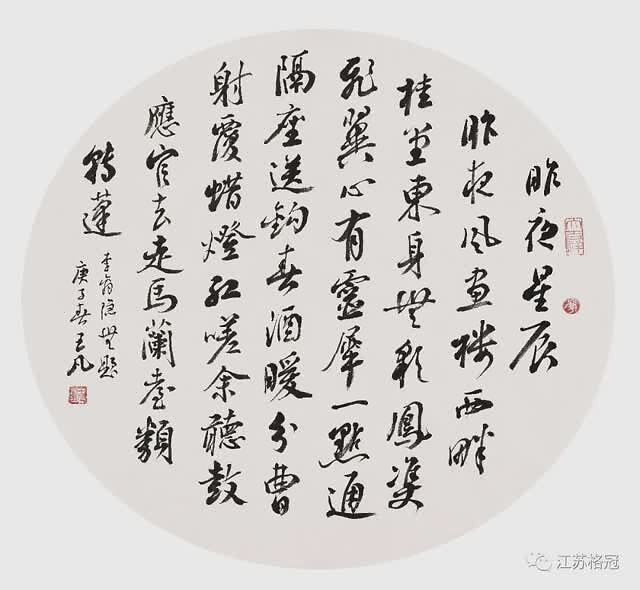 昨夜星辰
昨夜風畫樓西畔
桂堂東身無彩鳳雙
飛翼心有靈犀一點通
隔座送鈎春酒暖分曹
射覆蜡燈紅嗟余聽鼓
應官去走馬蘭臺類
轉蓬
李商隱無題
庚子春王凡
江苏格冠